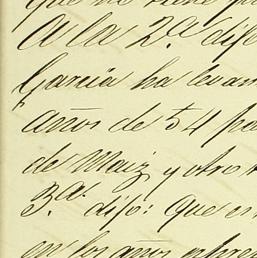 que no tiene
A la 2.ª dijo
Garcia ha levan
años de 54 pa
de Maiz, y otro
3.ª dijo: Que es
en los años espre